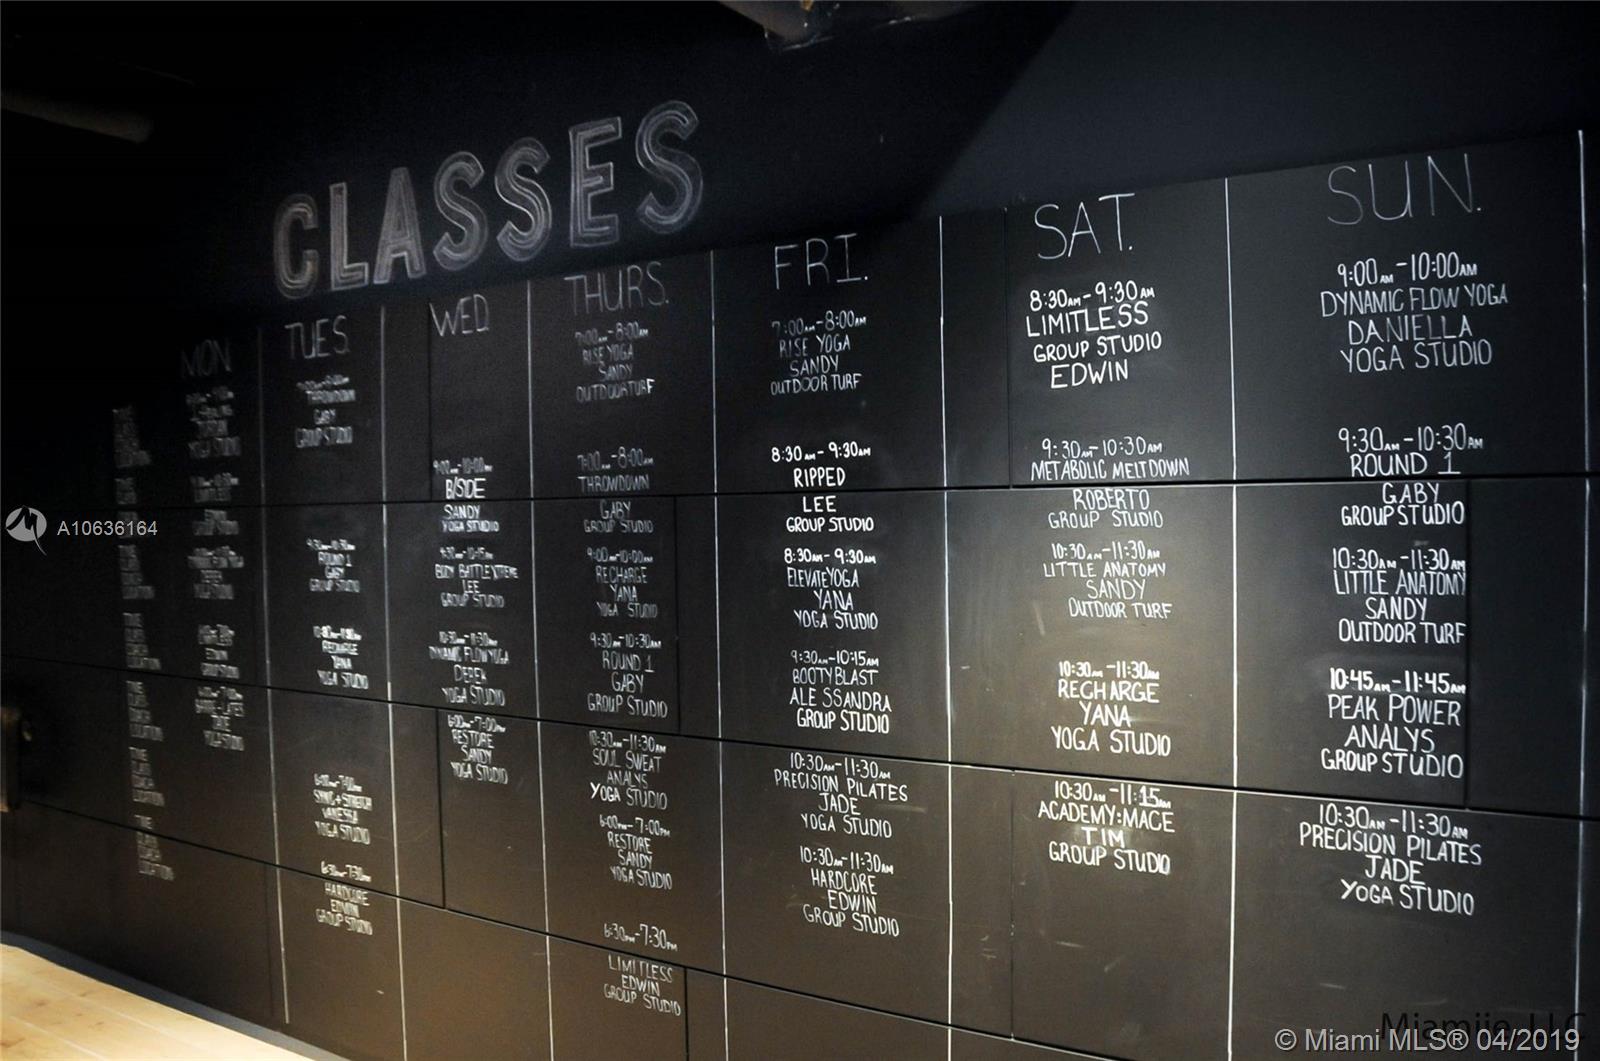 CLASSES
MON
GROUP STUDIO
YOGA STUDIO
TUES.
THROWDOWN
GABY
GROUP STUDIO
ROUND 1
GABY
GROUP STUDIO
RECHARGE
YANA
YOGA STUDIO
6:00PM-7:00PM
SYNC+STRETCH
VANESSA
YOGA STUDIO
6:30PM-7:30PM
HARDCORE
EDWIN
GROUP STUDIO
WED.
9:00AM-10:00AM
B/SIDE
SANDY
YOGA STUDIO
9:30AM-10:15AM
BODY BATTLE XTREME
LEE
GROUP STUDIO
10:30AM-11:30AM
DYNAMIC FLOW YOGA
DEREK
YOGA STUDIO
6:00PM-7:00PM
RESTORE
SANDY
YOGA STUDIO
THURS.
7:00AM-8:00AM
RISE YOGA
SANDY
OUTDOOR TURF
7:00AM-8:00AM
THROWDOWN
GABY
GROUP STUDIO
9:00AM-10:00AM
RECHARGE
YANA
YOGA STUDIO
9:30AM-10:30AM
ROUND 1
GABY
GROUP STUDIO
10:30AM-11:30AM
SOUL SWEAT
ANALYS
YOGA STUDIO
6:00PM-7:00PM
RESTORE
SANDY
YOGA STUDIO
6:30PM-7:30PM
LIMITLESS
EDWIN
GROUP STUDIO
FRI.
7:00AM-8:00AM
RISE YOGA
SANDY
OUTDOOR TURF
8:30AM-9:30AM
RIPPED
LEE
GROUP STUDIO
8:30AM-9:30AM
ELEVATE YOGA
YANA
YOGA STUDIO
9:30AM-10:15AM
BOOTY BLAST
ALESSANDRA
GROUP STUDIO
10:30AM-11:30AM
PRECISION PILATES
JADE
YOGA STUDIO
10:30AM-11:30AM
HARDCORE
EDWIN
GROUP STUDIO
SAT.
8:30AM-9:30AM
LIMITLESS
GROUP STUDIO
EDWIN
9:30AM-10:30AM
METABOLIC MELTDOWN
ROBERTO
GROUP STUDIO
10:30AM-11:30AM
LITTLE ANATOMY
SANDY
OUTDOOR TURF
10:30AM-11:30AM
RECHARGE
YANA
YOGA STUDIO
10:30AM-11:15AM
ACADEMY:MACE
TIM
GROUP STUDIO
SUN.
9:00AM-10:00AM
DYNAMIC FLOW YOGA
DANIELLA
YOGA STUDIO
9:30AM-10:30AM
ROUND 1
GABY
GROUP STUDIO
10:30AM-11:30AM
LITTLE ANATOMY
SANDY
OUTDOOR TURF
10:45AM-11:45AM
PEAK POWER
ANALYS
GROUP STUDIO
10:30AM-11:30AM
PRECISION PILATES
JADE
YOGA STUDIO
A10636164
Miamiie, LLC
© Miami MLS® 04/2019